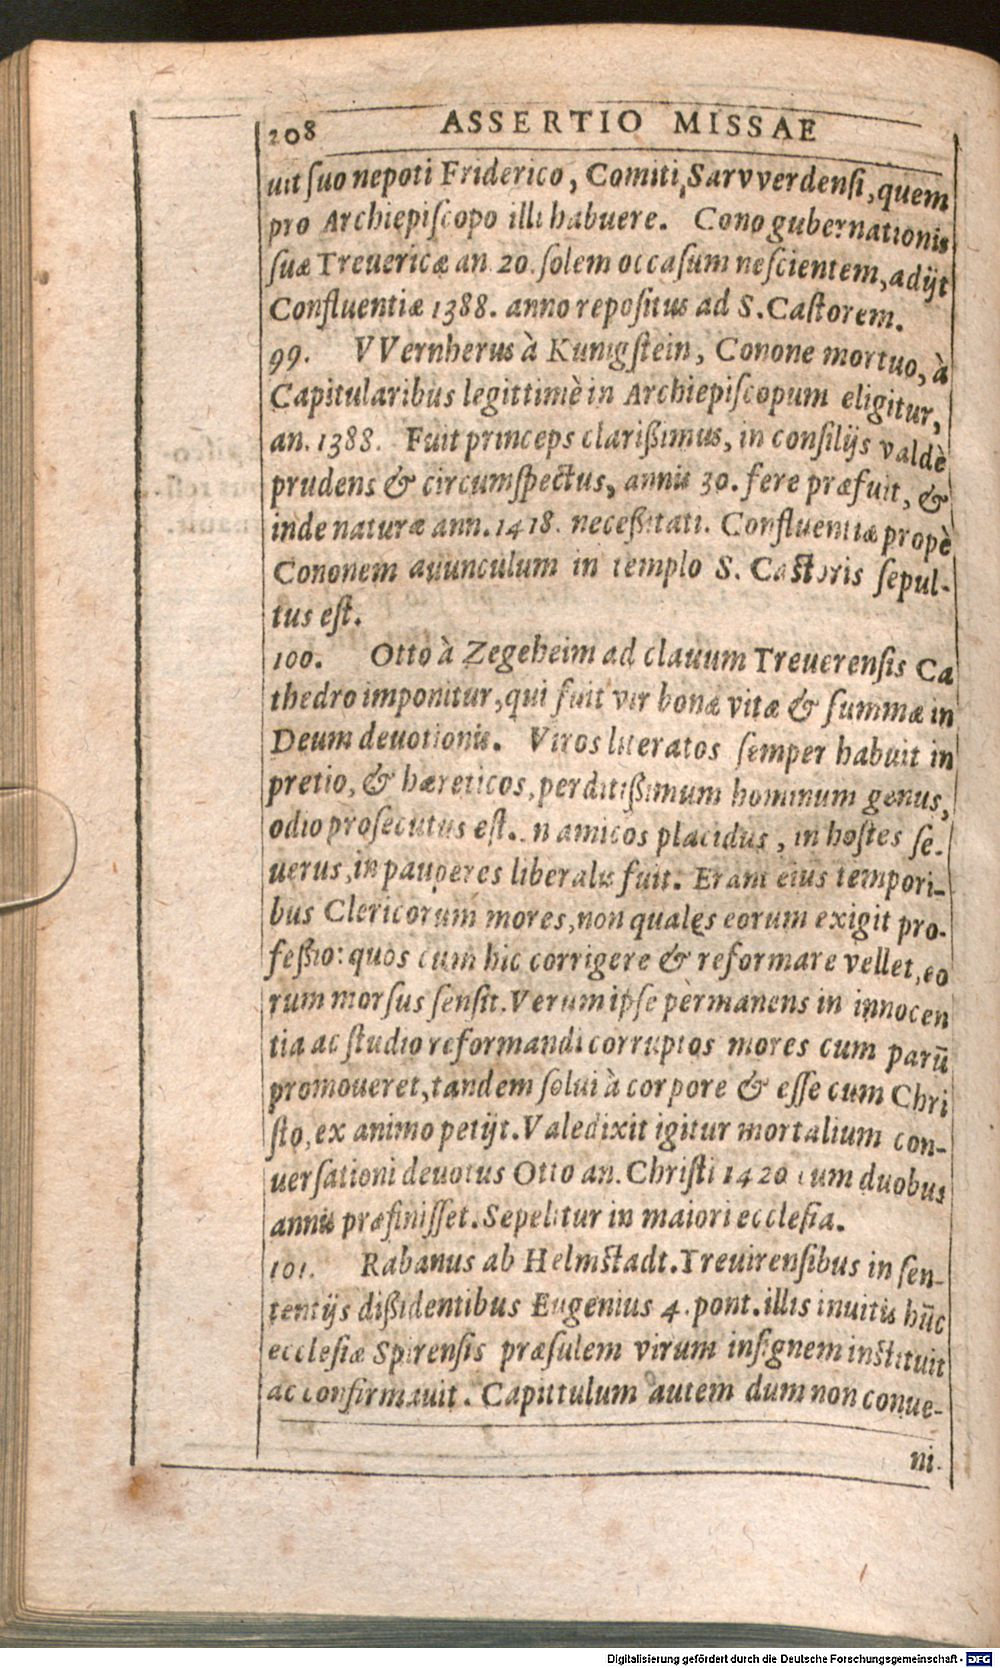 208 ASSERTIO MISSAE
uit ſuo nepoti Friderico, Comiti Sarvverdenſi, quem
pro Archiepiſcopo illi habuere. Cono gubernationis
ſuæ Treuericæ an. 20. ſolem occaſum neſcientem, adijt
Confluentiæ 1388. anno repoſitus ad S. Caſtorem.
99. VVernherus à Kunigſtein, Conone mortuo, à
Capitularibus legittimè in Archiepiſcopum eligitur,
an. 1388. Fuit princeps clarißimus, in conſilijs valdè
prudens & circumſpectus, annis 30. fere præfuit, &
inde naturæ ann. 1418. neceßitati. Confluentiæ propè
Cononem auunculum in templo S. Caſtoris ſepul-
tus eſt.
100. Otto à Zegeheim ad clauum Treuerenſis Ca
thedro imponitur, qui fuit vir bonæ vitæ & ſummæ in
Deum deuotionis. Viros literatos ſemper habuit in
pretio, & hæreticos, perditißimum hominum genus,
odio proſecutus eſt. n amicos placidus, in hoſtes ſe-
uerus, in pauperes liberalis fuit. Erant eius tempori-
bus Clericorum mores, non quales eorum exigit pro-
feßio: quos cum hic corrigere & reformare vellet, eo
rum morſus ſenſit. Verum ipſe permanens in innocen
tia ac ſtudio reformandi corruptos mores cum parũ
promoueret, tandem ſolui à corpore & eſſe cum Chri
ſto, ex animo petijt. Valedixit igitur mortalium con-
uerſationi deuotus Otto an. Chriſti 1420 cum duobus
annis præfiniſſet. Sepelitur in maiori eccleſia.
101. Rabanus ab Helmſtadt. Treuirenſibus in ſen-
tentijs dißidentibus Eugenius 4. pont. illis inuitis hũc
eccleſiæ Spirenſis præſulem virum inſignem inſtituit
ac confirmauit. Capittulum autem dum non conue-
ni-
Digitalisierung gefördert durch die Deutsche Forschungsgemeinschaft - DFG